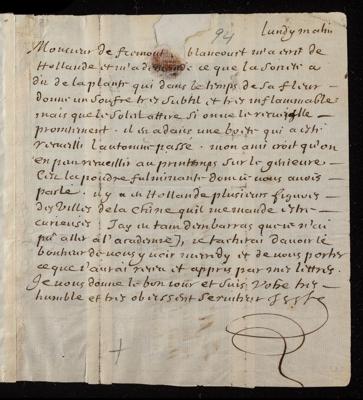 94 lundy matin
Monsieur de fremont blancourt m'a ecrit de
Hollande et m'a demandé ce que la Société a
dit de la plante qui dans le temps de sa fleur
donne un soufre tres subtil et tres inflammable
mais que le soleil attire si on ne le recueille
promtement. il en a dans une boëte qui a esté
recueilli l'automne passé. mon ami croit qu'on
en peu recueillir au printemps sur le genievre
C'est la poudre fulminante dont je vous avois
parlé. il y a en Hollande plusieurs figures
des villes de la Chine qu'il me mande estre
curieuses. J'ay un tant d'embarras que je n'ai
pu aller à l'academie, je tacherai d'avoir le
bonheur de vous y voir mercredy et de vous porter
ce que j'aurai receu et appris par mes lettres.
Je vous donne le bon jour et suis Votre tres
humble et tres obeissent serviteur